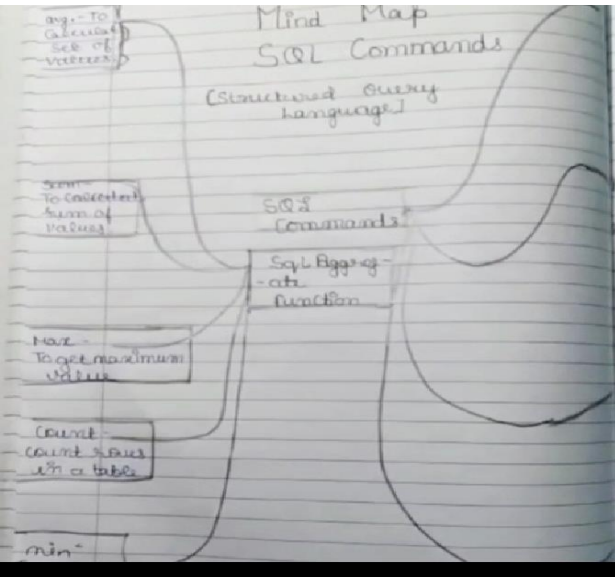 Mind Map
SQL Commands
[Structured Query
Language]
avg.- To
Calculat
Set of
values
Sum-
To
sum of
values
SQL
Commands
SQL Aggreg-
-ate
Function
Max-
To get maximum
value
Count-
count rows
in a table
min-